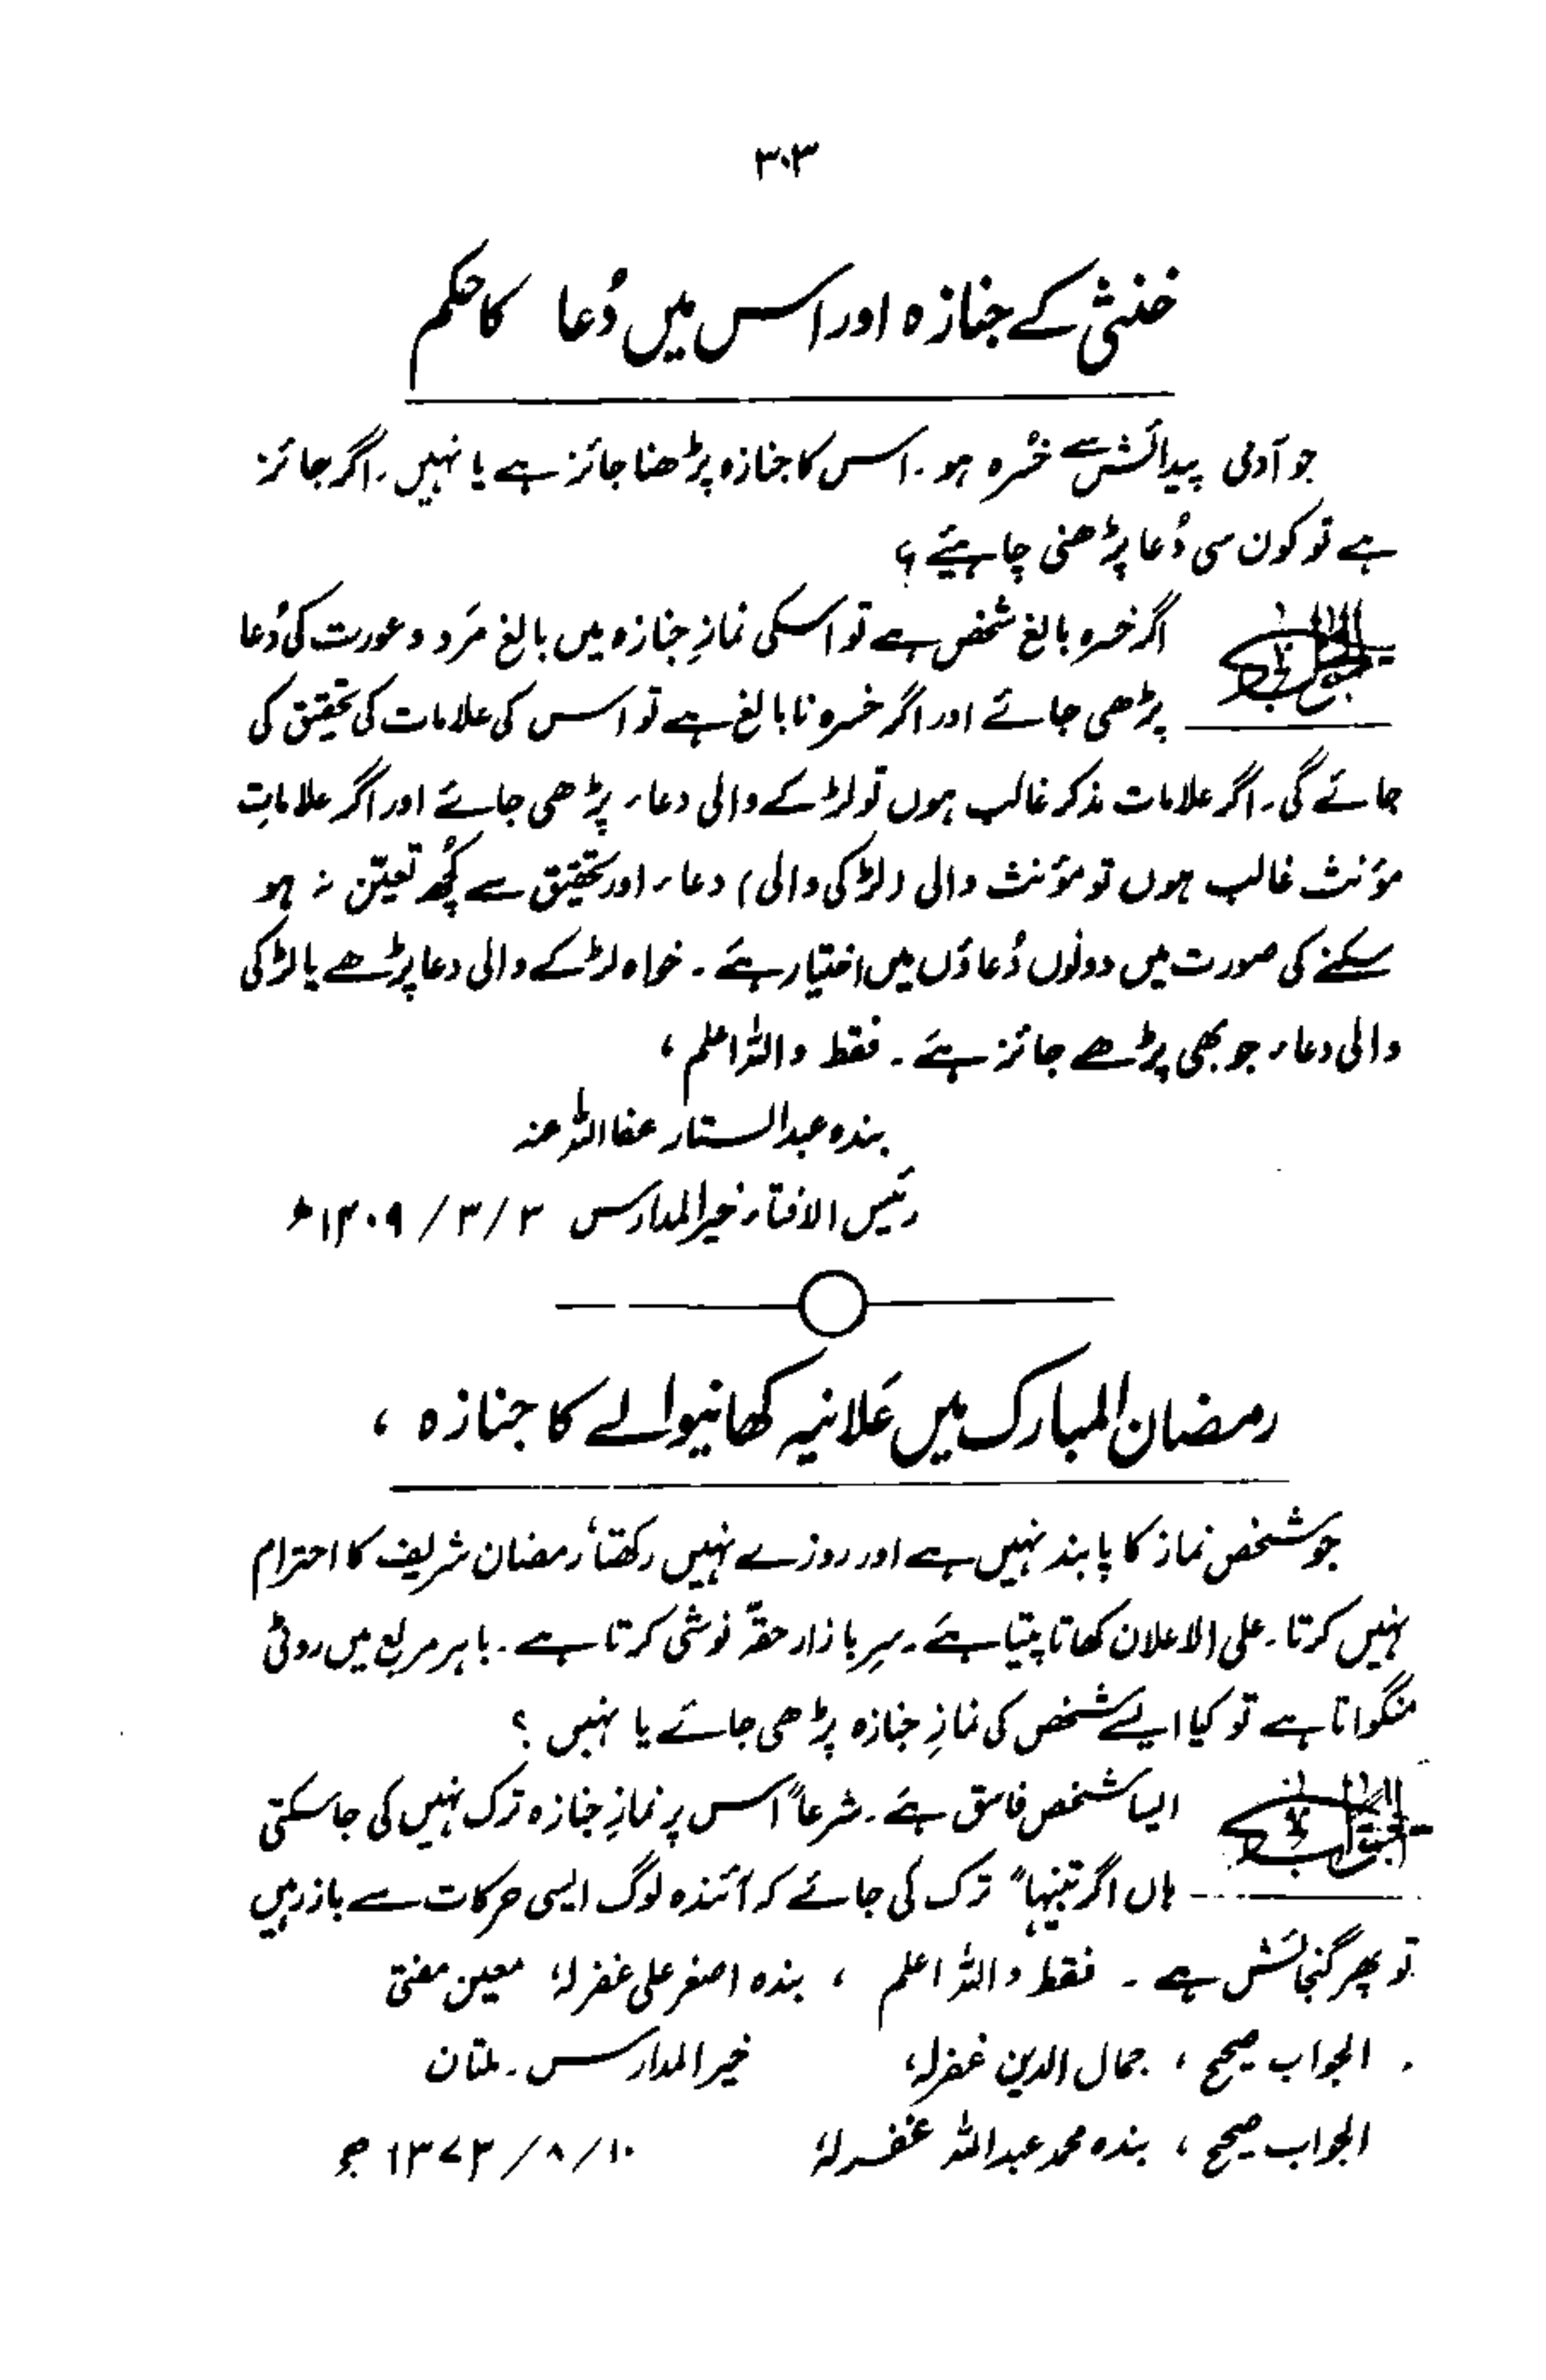 ۳۰۳
خنثیٰ کے جنازہ اور اس میں دُعا کا حکم
جو آدمی پیدائش سے خسُرہ ہو۔ اس کا جنازہ پڑھنا جائز ہے یا نہیں۔ اگر جائز
ہے تو کون سی دُعا پڑھنی چاہیئے؟
الجواب اگر خسرہ بالغ شخص ہے تو اسکی نمازِ جنازہ میں بالغ مَرد و عورت کی دُعا
پڑھی جائے اور اگر خسرہ نابالغ ہے تو اس کی علامات کی تحقیق کی
جائے گی۔ اگر علامات مذکر غالب ہوں تو لڑکے والی دعاء پڑھی جائے اور اگر علاماتِ
مؤنث غالب ہوں تو مؤنث والی (لڑکی والی) دعاء اور تحقیق سے کچُھ تعیّن نہ ہو
سکنے کی صورت میں دونوں دُعاؤں میں اختیار ہے۔ خواہ لڑکے والی دعا پڑھے یا لڑکی
والی دعاء جو بھی پڑھے جائز ہے۔ فقط واللہ اعلم،
بندہ عبدالستار عفا اللہ عنہ
رئیس الافتاء خیرالمدارس ۳/۳/۱۴۰۹ھ
رمضان المبارک میں عَلانیہ کھانیوالے کا جنازہ،
جو شخص نماز کا پابند نہیں ہے اور روزے نہیں رکھتا، رمضان شریف کا احترام
نہیں کرتا۔ علی الاعلان کھاتا پیتا ہے۔ سرِ بازار حقہّ نوشی کرتا ہے۔ باہر مربع میں روٹی
منگواتا ہے تو کیا ایسے شخص کی نمازِ جنازہ پڑھی جائے یا نہیں؟
الجواب ایسا شخص فاسق ہے۔ شرعاً اس پر نمازِ جنازہ ترک نہیں کی جاسکتی
ہاں اگر تنبیہاً ترک کی جائے کہ آئندہ لوگ ایسی حرکات سے باز رہیں
تو پھر گنجائش ہے۔ فقط واللہ اعلم، بندہ اصغر علی غفرلہٗ معین مفتی
الجواب صحیح، جمال الدین غفرلہٗ خیرالمدارس۔ ملتان
الجواب صحیح، بندہ محمد عبداللہ غفرلہٗ ۱۰/۸/۱۳۷۳ھ